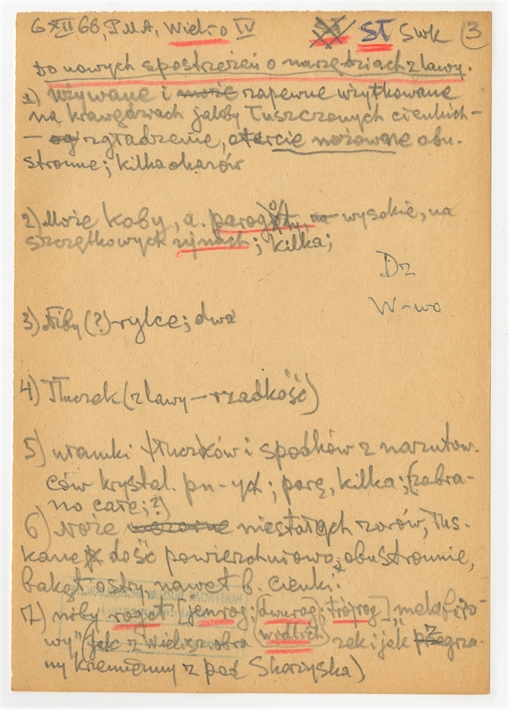 6 XII 66, PMA, Wieliszo IV ST ST SWK 3
Do nowych spostrzeżeń o narzędziach z lawy.
1) Używane i może zapewne użytkowane
na krawędziach jakby łuszczonych cienkich -
- og zgładzenie, otarcie nożowne obu-
stronne; kilka okazów
2) Może koby, a. wysokie, na
szczętkowych ; kilka;
Dz
W-wo
3) Niby (?) - rylce; dwa
4) Tłuczek (z lawy - rzadkość)
5) ułamki tłuczków i spodków z narzutow-
ców krystal. pn-ych; parę, kilka; (zabra-
no całe; ?)
6) Noże niestałych zorów, łus-
kane dość powierzchniowo, obustronnie,
b. cienki
7) niby rogot [jenrog; dwurog; trójrog] melafiro-
wy" (jak z wodlich rzek i jak z
ny krzemienny z pod Skarżyska)